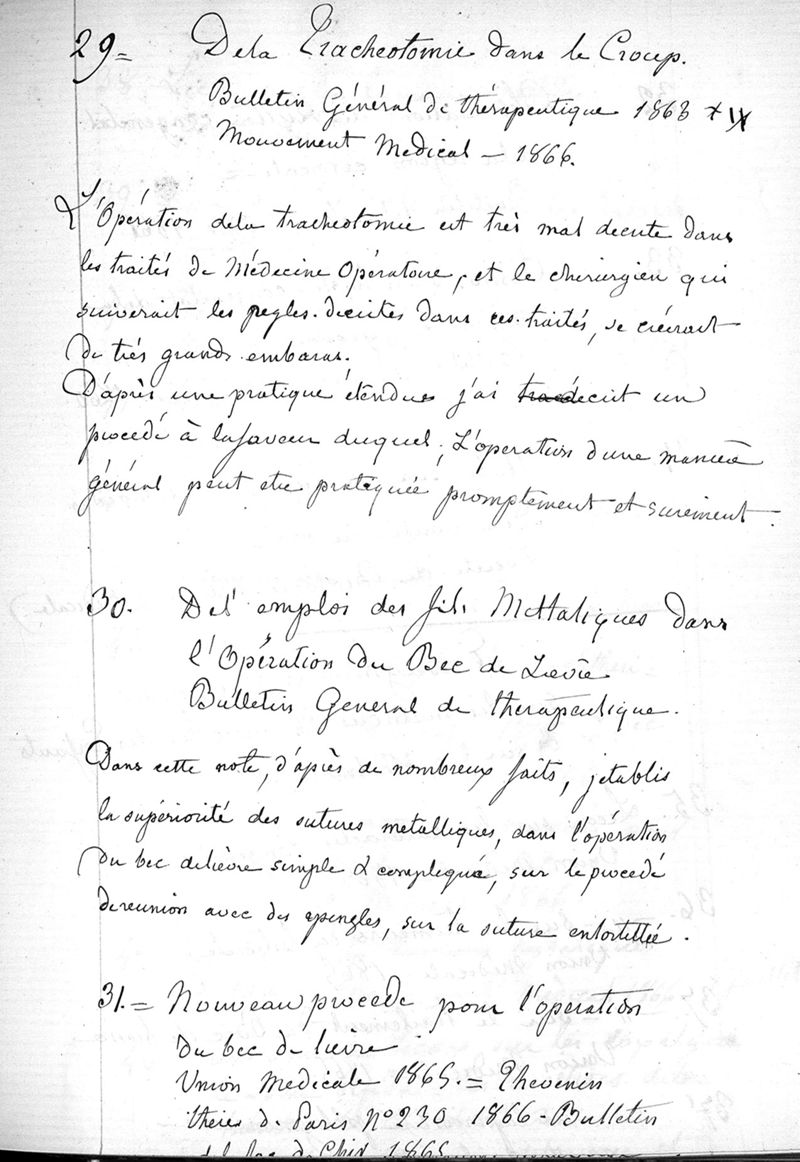 29= De la Tracheotomie dans le Croup.
Bulletin Général de thérapeutique 1863
Mouvement Medical - 1866.
L'Opération de la tracheotomie est très mal decrite dans
les traités de Médecine Opératoire, et le chirurgien qui
suiverait les regles decrites dans ces traités, se créerait
de très grands embaras.
D'après une pratique étendue j'ai decrit un
procedé à la faveur duquel, L'operation d'une manière
général peut etre pratiquée promptement et surement
30. De l'emploi des fils Mettaliques dans
l'Opération du Bec de Lievre
Bulletin General de therapeutique.
Dans cette note, d'après de nombreux faits, j'etablis
la supériorité des sutures metalliques, dans l'opération
du bec de lièvre simple & complequé, sur le procedé
de reunion avec des epingles, sur la suture entortillée.
31.= Nouveau procede pour l'operation
du bec de lievre
Union Medicale 1865.= Thevenin
thèses de Paris No 230 1866 - Bulletin
de Chir 1865